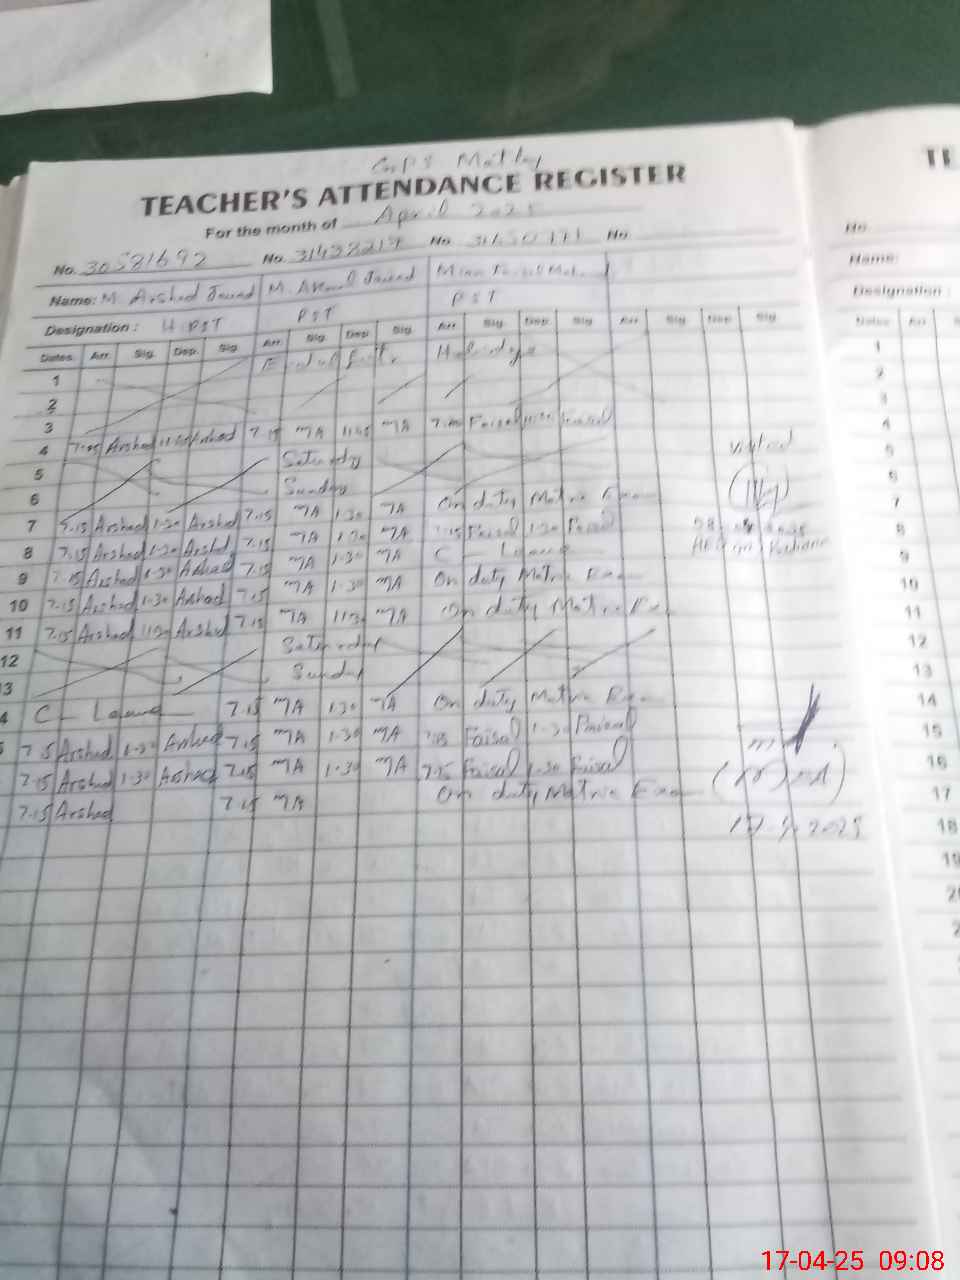 GPS Matley
TEACHER'S ATTENDANCE REGISTER
TE
For the month of April 2025
No. 30581692 No. 31438217 No. No.
No.
Name: M. Arshad Javed M. Javed
Name:
Designation: H.PST PST PST
Designation:
Dates Arr. Sig. Dep. Sig. Arr. Sig. Dep. Sig. Arr. Sig. Dep. Sig. Arr. Sig. Dep. Sig.
Dates Arr
1 Eid ul Fitr Holidays
2
3
4 7:05 Arshad Arshad 7.15 MA MA Faisal
5 Saturday
6 Sunday
7 7.15 Arshad 1-30 Arshad 7.15 MA 1.30 MA On duty Matric Exam
8 7.15 Arshad 1-30 Arshad 7.15 MA 1.30 MA 7.15 Faisal 1-30 Faisal
9 7.15 Arshad 1-30 Arshad 7.15 MA 1.30 MA C - Leave
10 7.15 Arshad 1-30 Arshad 7.15 MA 1.30 MA On duty Matric Exam
11 7.15 Arshad Arshad 7.15 MA MA On duty Matric Exam
12 Saturday
13 Sunday
4 C - Leave 7.15 MA 1.30 MA On duty Matric Exam
5 7.15 Arshad 1-30 Arshad 7.15 MA 1.30 MA Faisal 1-30 Faisal
7.15 Arshad 1-30 Arshad 7.15 MA 1.30 MA 7.15 Faisal 1.30 Faisal
7.15 Arshad 7.15 MA On duty Matric Exam
visited
17-4-2025
1
2
3
4
5
6
7
8
9
10
11
12
13
14
15
16
17
18
19
17-04-25 09:08